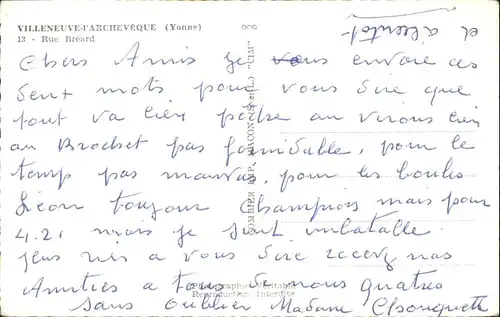 VILLENEUVE-l'ARCHEVÊQUE (Yonne)
13 - Rue Bréard
et
à bientot
Chers Amis je vous envoie ces
deux mots pour vous dire que
tout va bien pêche au vérons bien
au Brochet pas formidable, pour le
temp pas mauvais, pour les boules
Léon toujour Champion mais pour
4.21 mois je suis imbatalle.
rien a vous dire recevez nos
Amities a tous de nous quatres
sans oublier Madame
COMBIER IMP. MACON (S.-et-L.) "CIM"
Photographie Véritable
Reproduction Interdite